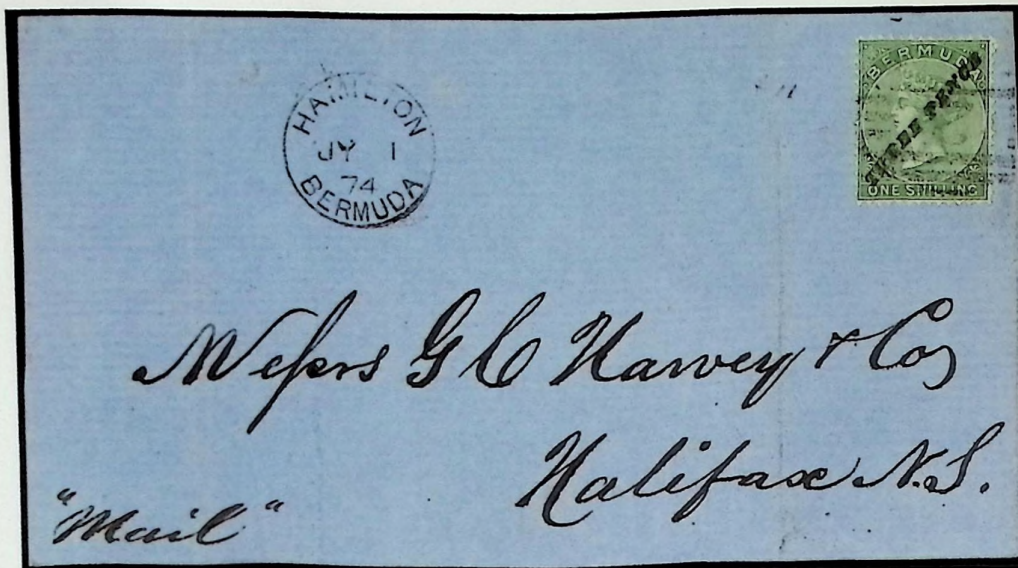 HAMILTON
JY 1
74
BERMUDA
BERMUDA
THREE PENCE
ONE SHILLING
Messrs G C Harvey & Coy
Halifax N.S.
"Mail"